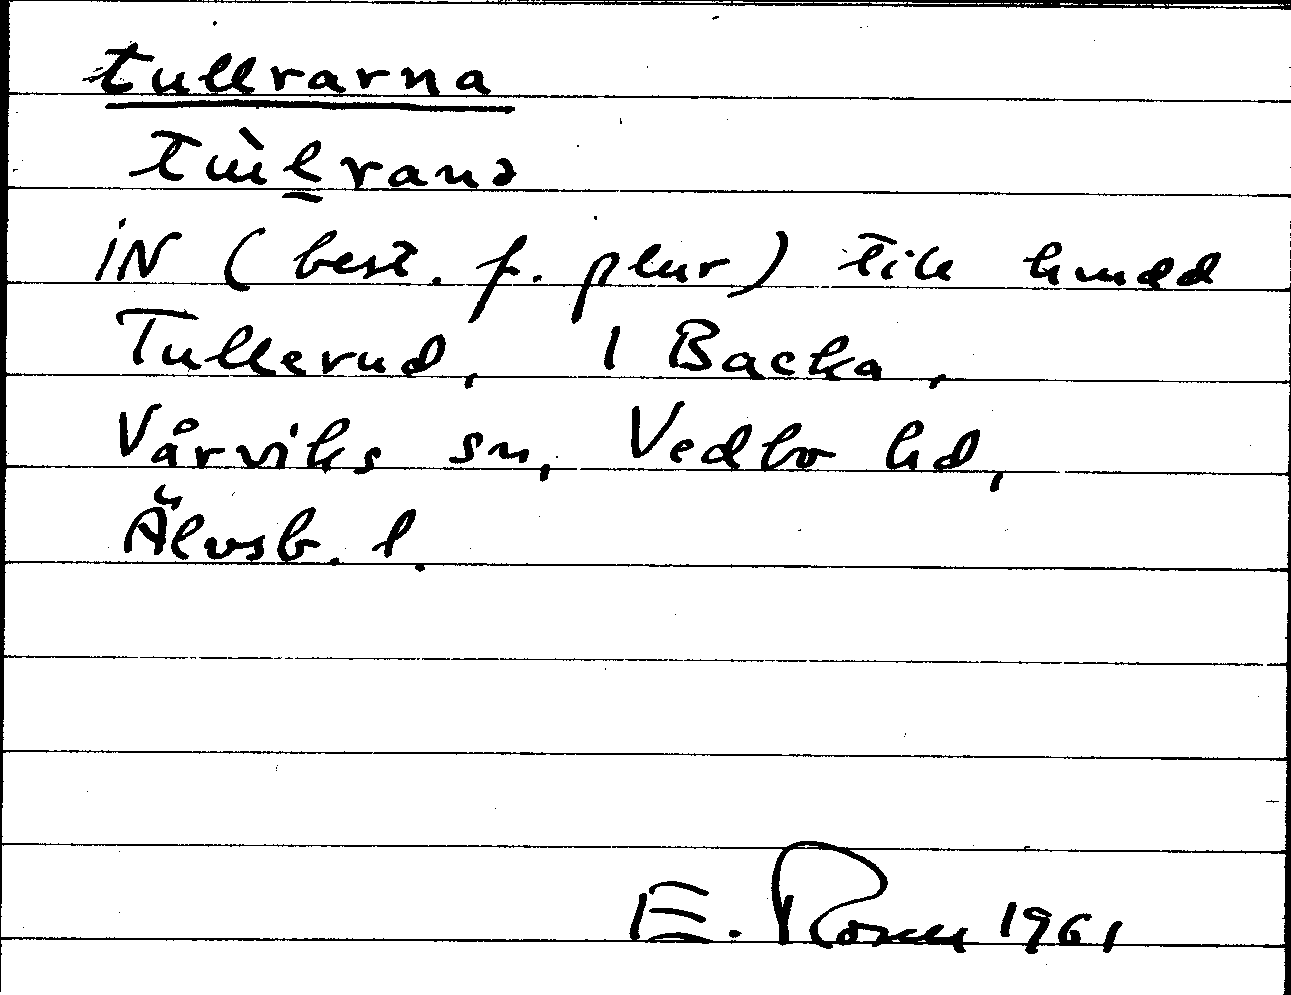 tullrarna
tùl̲ranə
iN (best. f. plur) till hmdd
Tullerud, 1 Backa,
Vårviks sn, Vedbo hd,
Älvsb. l.
E. Rosell 1961